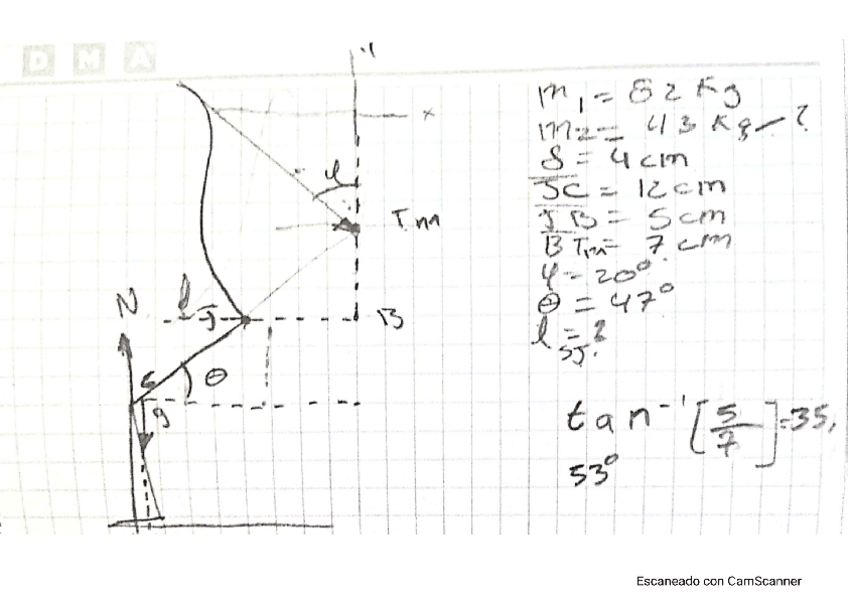 D M A
y
x
φ
Tm
N
l
J
B
C
θ
g
m₁ = 82 Kg
m₂ = 43 Kg - ?
S = 4 cm
JC = 12 cm
JB = 5 cm
BTm = 7 cm
φ = 20°
θ = 47°
l = ?
SJ?
tan⁻¹ [5/7] = 35,
53°
Escaneado con CamScanner